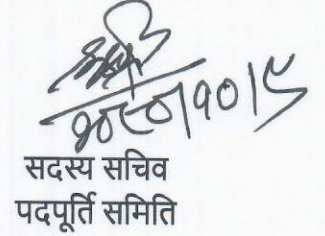 २०८०।१०।९
सदस्य सचिव
पदपूर्ति समिति